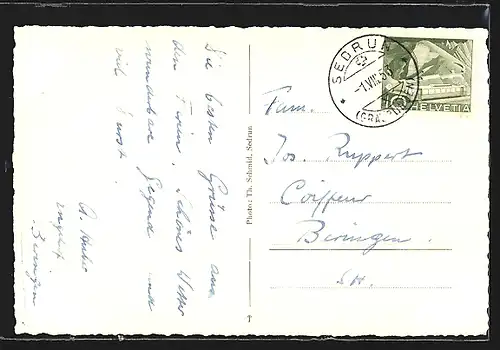 Die besten Grüsse aus
den Ferien. Schönes Wetter
wunderbare Gegend und
viel Durst.
A. Huber
Beringen
Photo: Th. Schmid, Sedrun
T
SEDRUN
-1.VII.53
(GRAUBÜNDEN)
10 HELVETIA
Fam.
Jos. Ruppert
Coiffeur
Beringen.
SH.